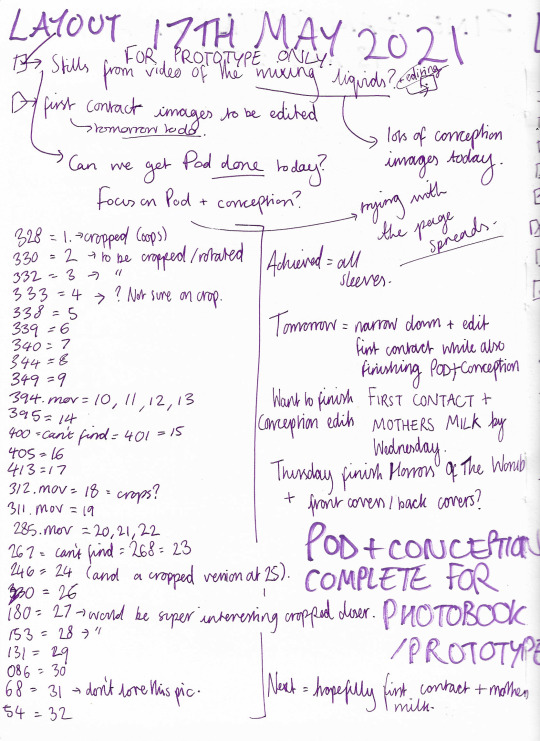 LAYOUT 17TH MAY 2021
FOR PROTOTYPE ONLY.
Stills from video of the mixing liquids? → editing
first contact images to be edited
→ tomorrow to do.
lots of conception
images today.
Can we get Pod done today?
Focus on Pod + conception?
with
the page
spreads.
328 = 1. → cropped (oops)
330 = 2 → to be cropped/rotated
332 = 3 → "
333 = 4 → ? Not sure on crop.
338 = 5
339 = 6
340 = 7
344 = 8
349 = 9
394.mov = 10, 11, 12, 13
395 = 14
400 = can't find = 401 = 15
405 = 16
413 = 17
312.mov = 18 = crops?
311.mov = 19
285.mov = 20, 21, 22
267 = can't find = 268 = 23
246 = 24 (and a cropped version at 25).
330 = 26
180 = 27 → would be super interesting cropped closer.
153 = 28 → "
131 = 29
086 = 30
68 = 31 → don't love this pic.
54 = 32
Achieved = all
sleeves.
Tomorrow = narrow down + edit
first contact while also
finishing POD + Conception
Want to finish FIRST CONTACT +
Conception edits MOTHERS MILK by
Wednesday.
Thursday finish Horrors Of The Womb
+ front covers / back covers?
POD + CONCEPTION
COMPLETE FOR
PHOTOBOOK
/PROTOTYPE
Next = hopefully first contact + mothers
milk.